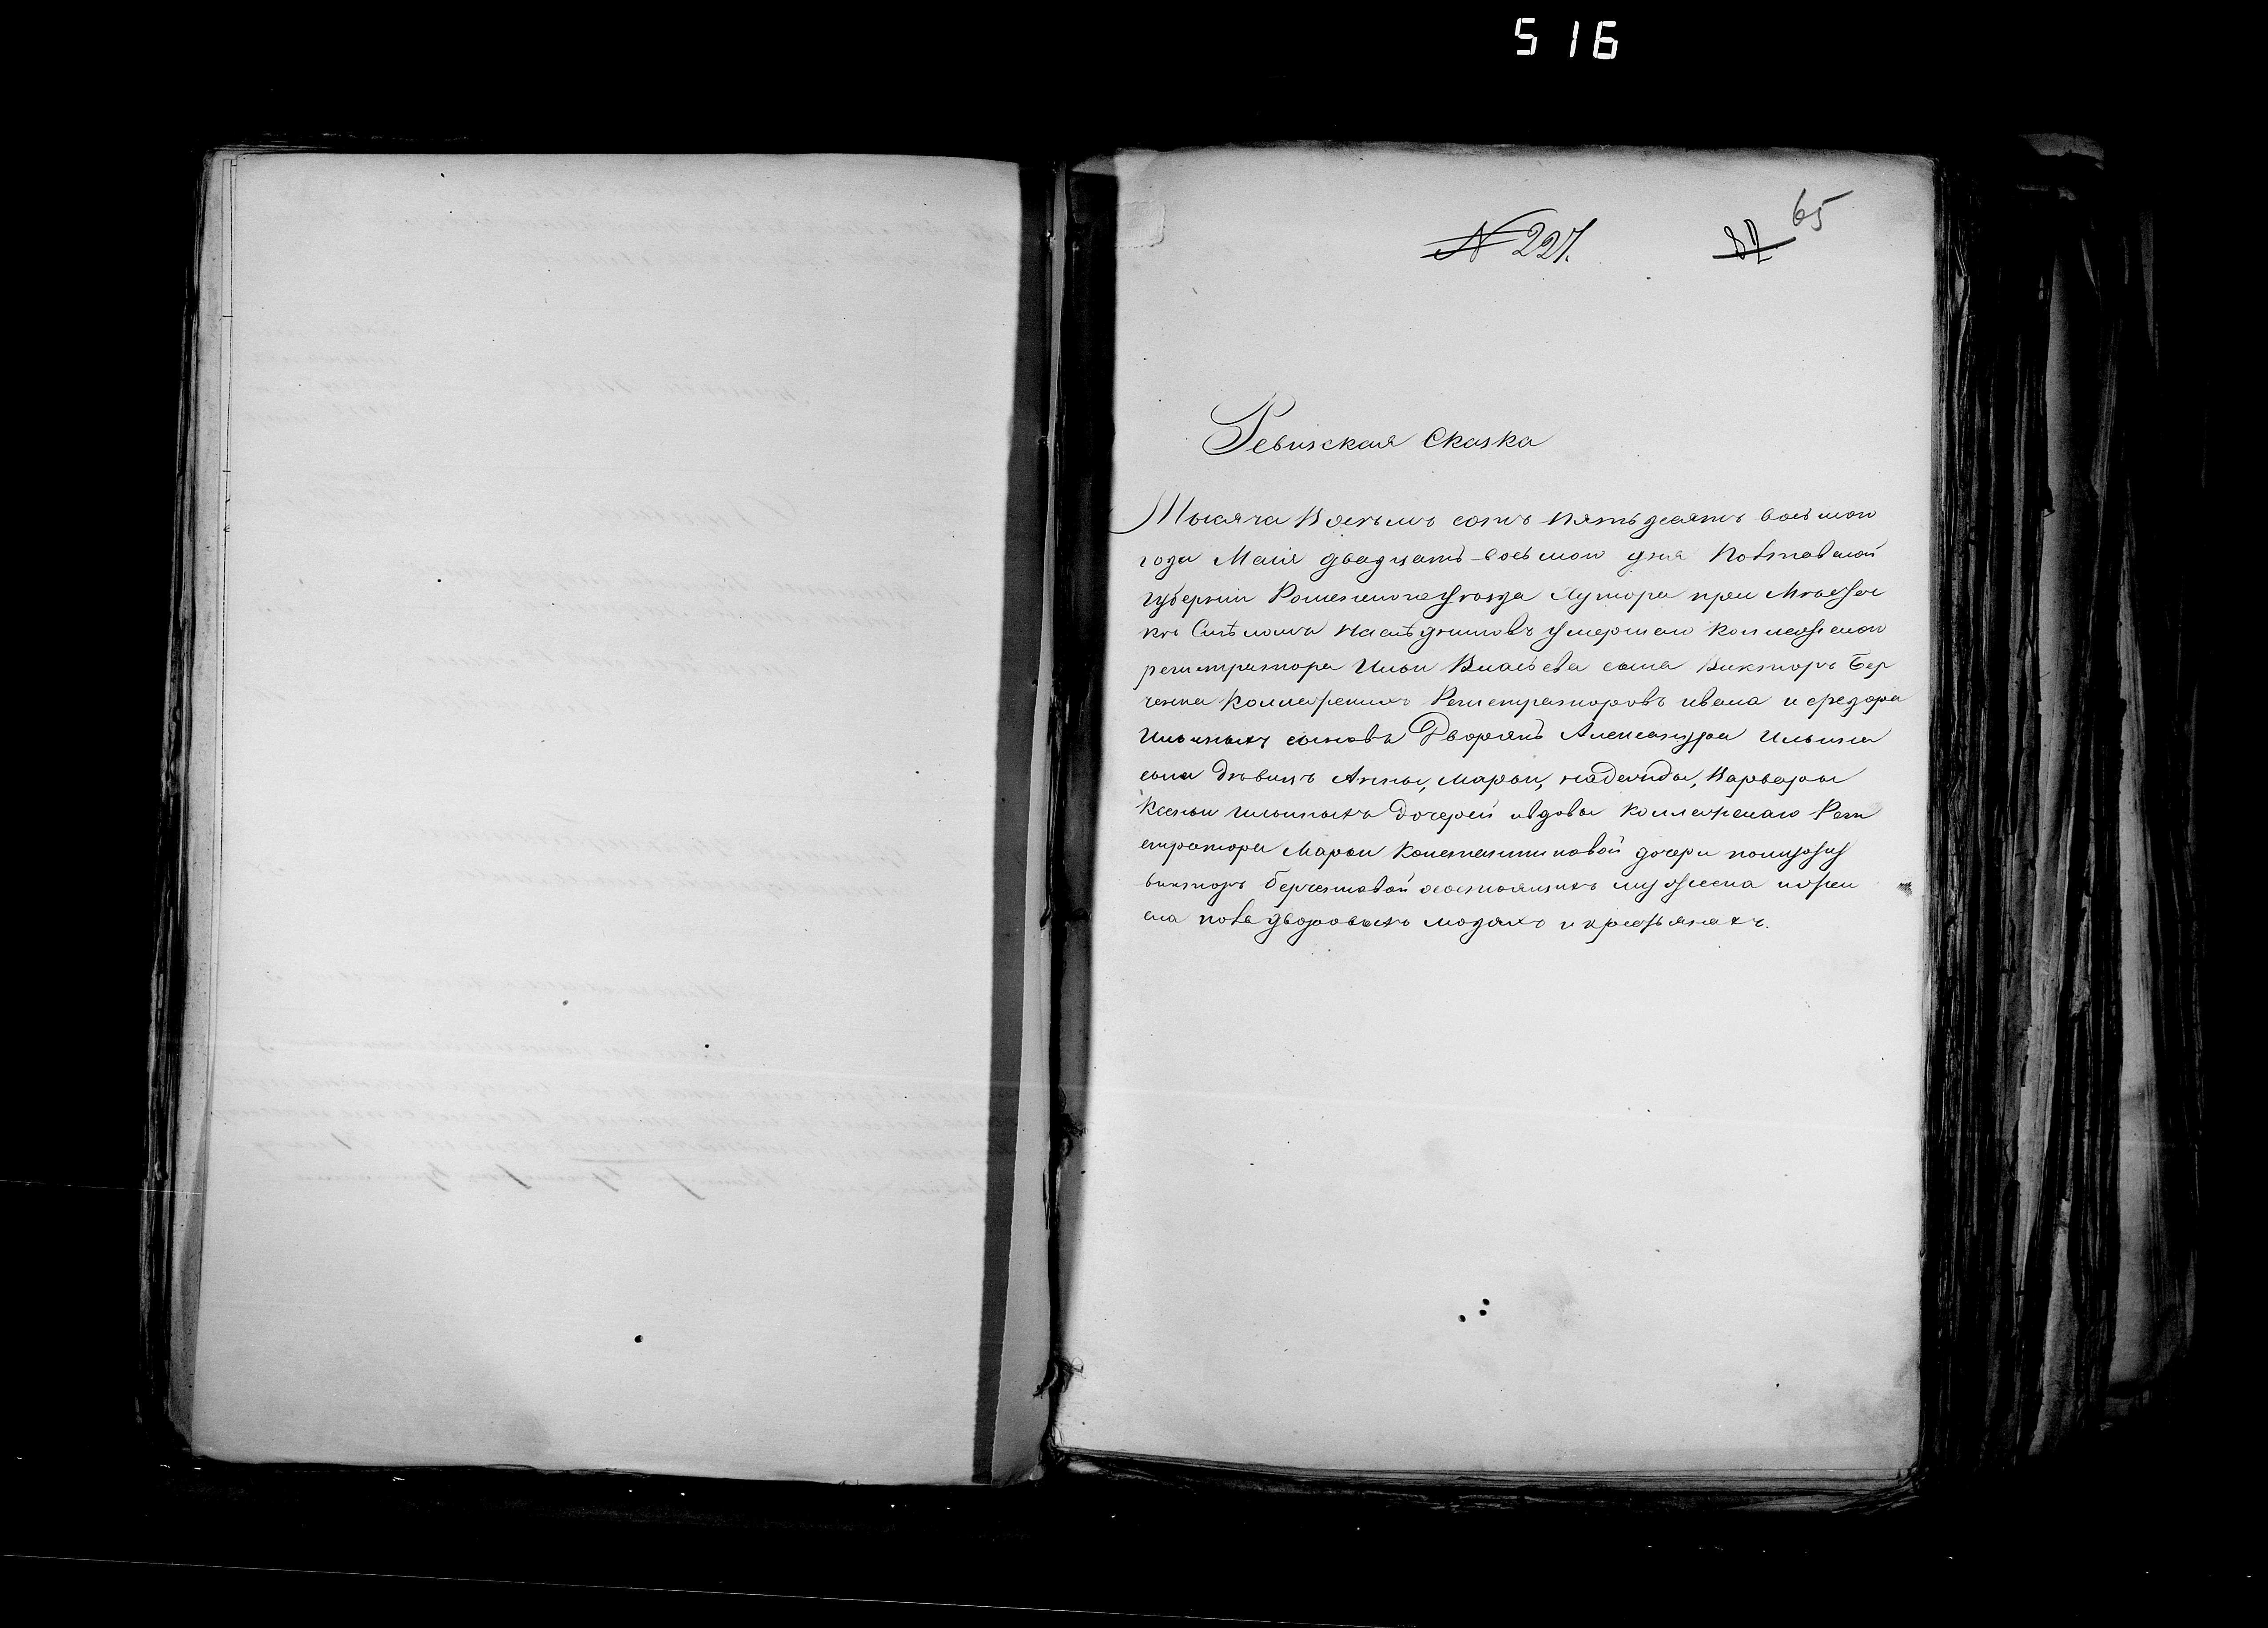 516
65
№ 227.
87
Ревизская Сказка
Тысяча Восемъ сотъ пятьдесятъ восьмого
года Маія двадцать восьмого дня Полтавской
Губерніи Роменского уезда Хутора при
наследниковъ умершаго Коллежского
регистратора Ильи сына Викторъ Бер
ченка Коллежскихъ Регистраторовъ ивана и федора
Ильиныхъ сыновъ Дворянъ Александра Ильина
сына Девицъ Анны, Марьи, надежды, Варвары
Ксеньи ильиныхъ дочерей вдовы коллежскаго Реги
стратора Марьи Константиновой дочери
викторъ Берченковой состоящихъ мужеска и жен
ска пола дворовыхъ людяхъ и крестьянахъ.